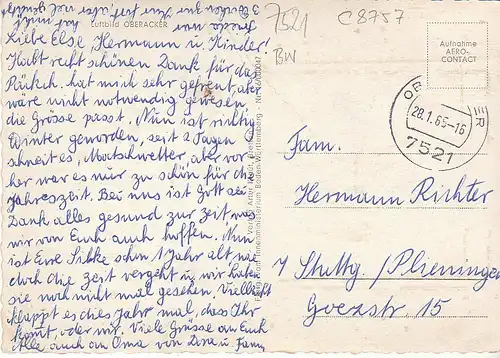 7521
C 8757
BW
Luftbild OBERACKER
Aufnahme
AERO-
CONTACT
28.1.65-16
7521
Liebe Else, Hermann u. Kinder!
Habt recht schönen Dank für das
hat mich sehr gefreut, aber
wäre nicht notwendig gewesen,
die Grösse passt. Nun ist richtig
Winter geworden, seit 2 Tagen
schneit es, Matschwetter, aber vor
her war es nur zu schön für die
Jahreszeit. Bei uns ist Gott sei
Dank alles gesund zur Zeit, was
wir von Euch auch hoffen. Nun
ist Eure Silke schon 1 Jahr alt
doch die Zeit vergeht u. wir haben
sie noch nicht mal gesehen. Vielleicht
klappt es dies Jahr mal, dass Ihr
kommt, oder wir. Viele Grüsse an Euch
Alle auch an Oma von u. Fam.
Fam.
Hermann Richter
7 Stuttg./Plieningen
Goezstr. 15